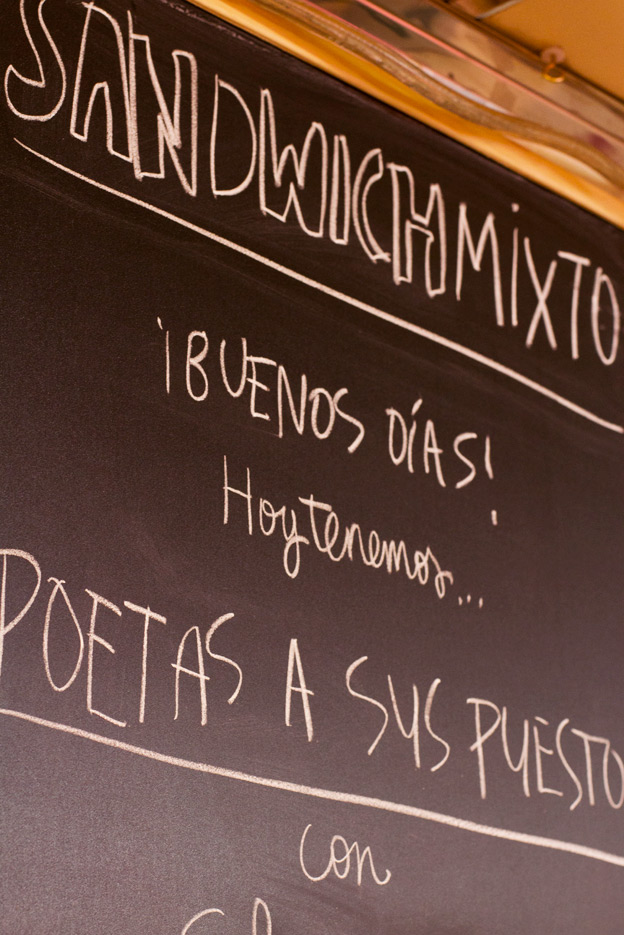 SANDWICH MIXTO
¡BUENOS DÍAS!
Hoy tenemos...
POETAS A SUS PUESTO
con